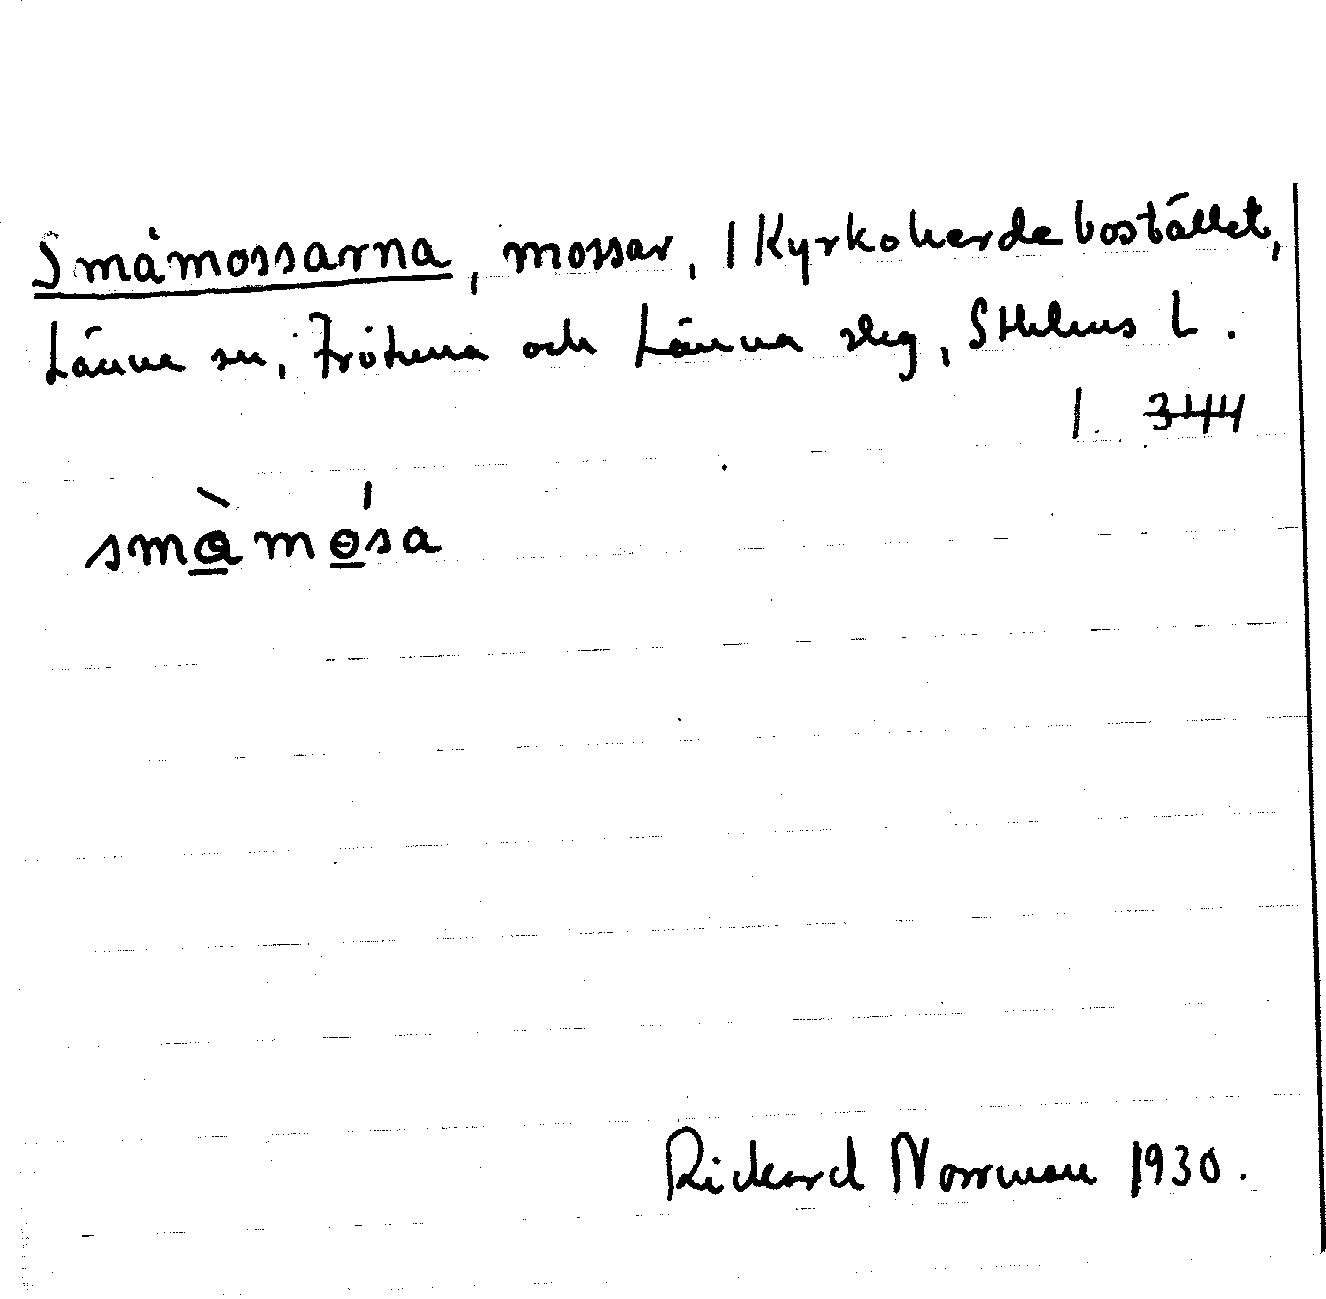 Småmossarna, mossar, 1 Kyrkoherdebostället,
Länna sn, Frötuna och Länna slg, Sthlms L.
1. 344
småmɵsa
Rickard Norrman 1930.